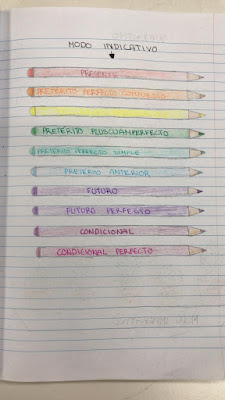 MODO INDICATIVO
PRESENTE
PRETERITO PERFECTO COMPUESTO
PRETERITO PLUSCUAMPERFECTO
PRETERITO PERFECTO SIMPLE
PRETERITO ANTERIOR
FUTURO
FUTURO PERFECTO
CONDICIONAL
CONDICIONAL PERFECTO